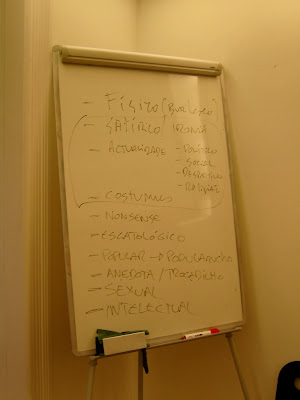 - FÍSICO (BURLESCO)
- SATÍRICO / IRONIA
- ACTUALIDADE - POLÍTICO
- SOCIAL
- DESPORTIVO
- RELIGIÃO
- COSTUMES
- NONSENSE
- ESCATOLÓGICO
- POPULAR → POPULARUCHO
- ANEDOTA / TROCADILHO
- SEXUAL
- INTELECTUAL